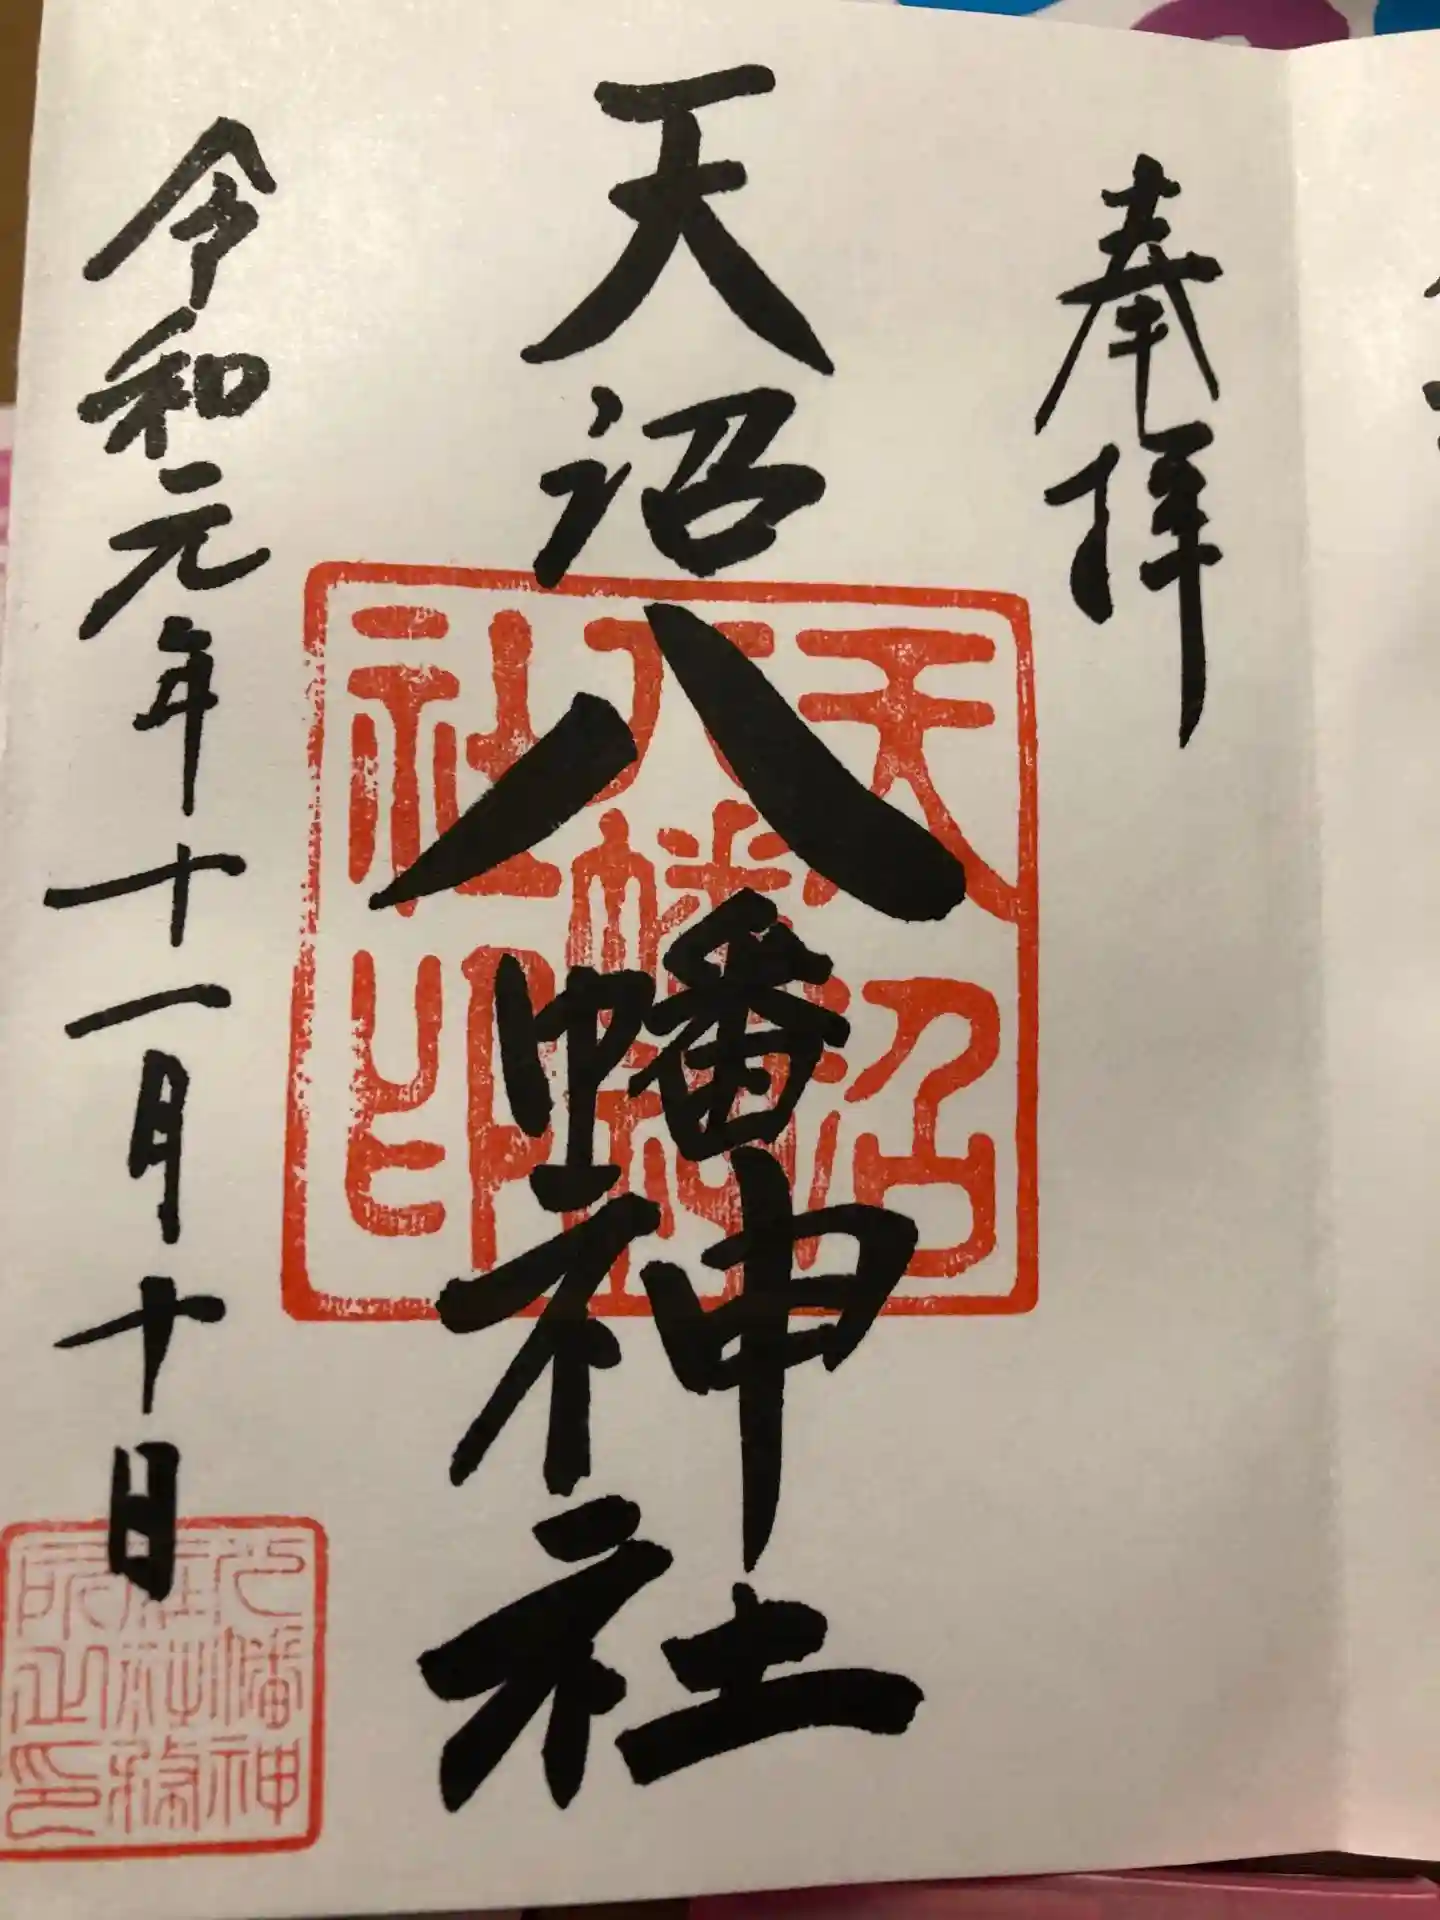 奉拝
天沼八幡神社
天沼
八幡神
社印
令和元年十一月十日
八幡神
社社務
所之印